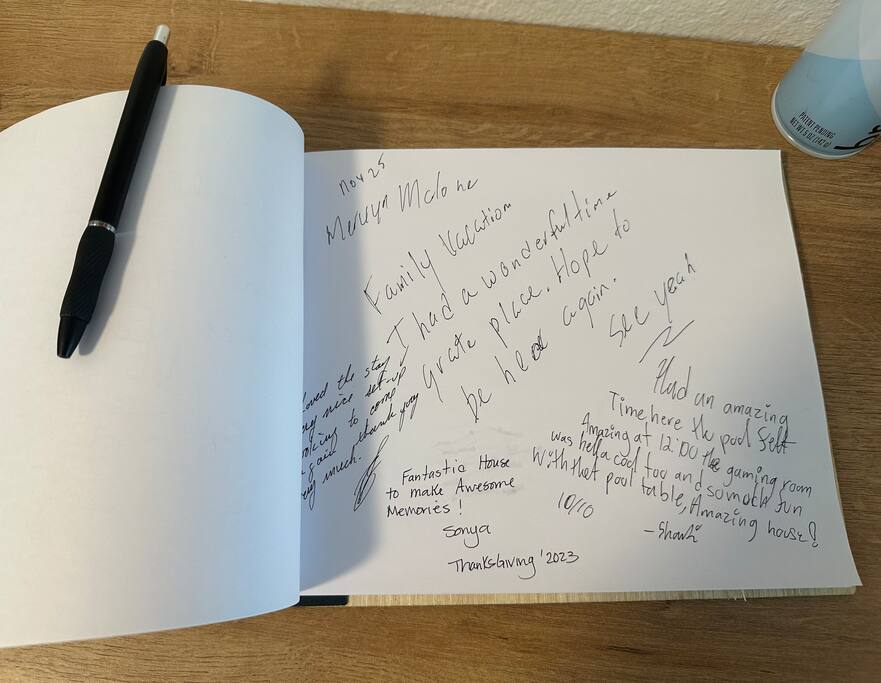 Nov 25
Mervyn Mclone
Family Vacation
I had a wonderful time
grate place. Hope to
be here again.
See yeah
loved the stay
nice set-up
looking to come
again
much. thank you
Fantastic House
to make Awesome
Memories!
Sonya
ThanksGiving '2023
Had an amazing
Time, here the pool felt
Amazing at 12:00 the gaming room
was hella cool too and so much fun
With that pool table, Amazing house!
10/10
PATENT PENDING
NET WT 5 OZ (142 G)